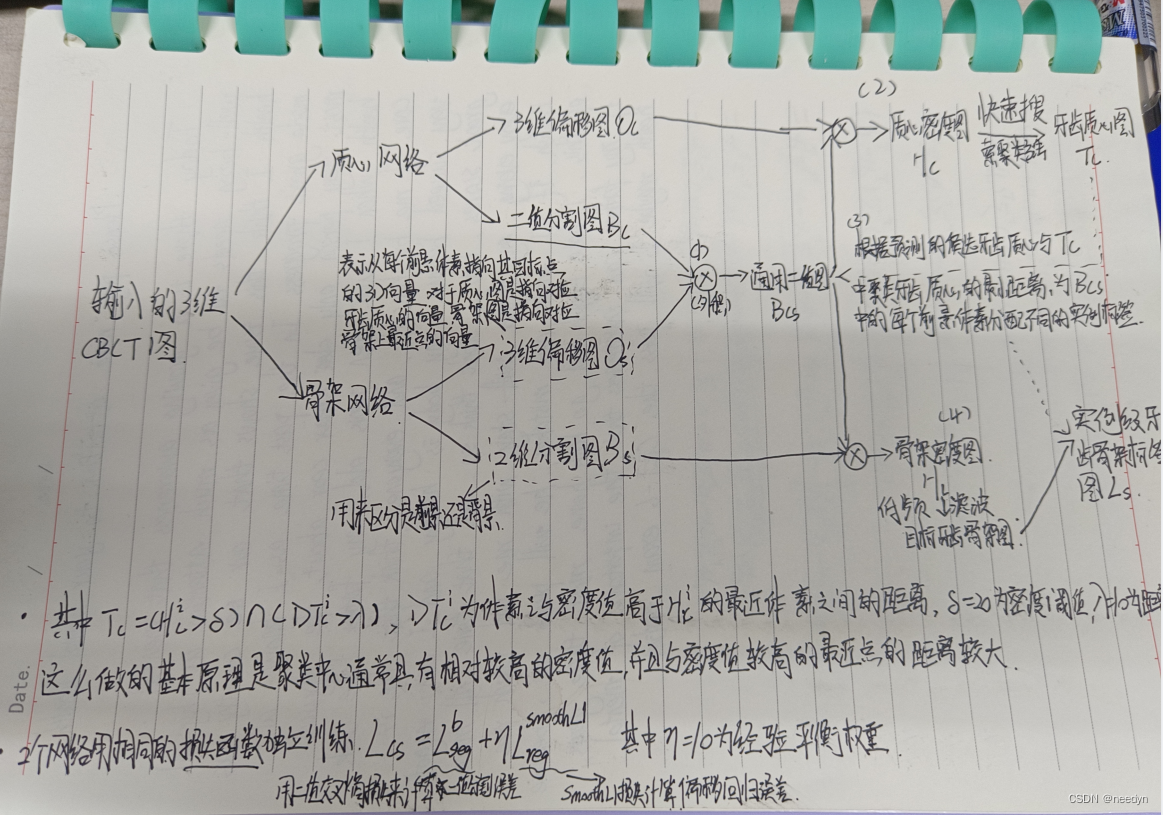 (2)
3维偏移图 Oc
质心密度图
Hc
快速搜
索聚类法
牙齿质心图
Tc.
质心网络
二值分割图 Bc
(3)
根据预测的偏远牙齿质心与 Tc
中聚类牙齿质心的最小距离,为 Bcs
中的每个前景体素分配不同的实例标签.
表示从每个前景体素指向其目标点
的3D向量.对于质心图是指向对应
牙齿质心的向量,骨架图是指向对应
骨架上最近点的向量
通用二值图
Bcs
输入的3维
CBCT图.
3维偏移图 Os
骨架网络
(4)
2维分割图 Bs
骨架密度图.
实例级牙
齿骨架标签
图 Ls.
用来区分是前景还是背景.
目标牙齿骨架图.
• 其中 Tc=(Hcⁱ>δ)∩(DTcⁱ>λ), DTcⁱ 为体素i与密度值高于Hcⁱ的最近体素之间的距离, δ=20为密度阈值, λ=10为距离
这么做的基本原理是聚类中心通常具有相对较高的密度值,并且与密度值较高的最近点的距离较大.
• 2个网络用相同的损失函数独立训练. Lcs = Lᵇseg + ηL^smoothL1 reg 其中 η=10为经验平衡权重.
用二值交叉熵损失来计算二值分割误差
SmoothL1损失计算偏移回归误差.
Date.
CSDN @needyn